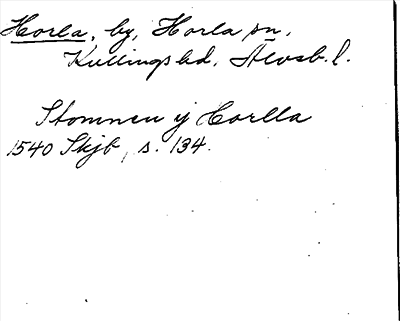 Horla, by, Horla sn,
Kullings hd, Älvsb. l.
Stomnen ij Horlla
1540 Skjb, s. 134.